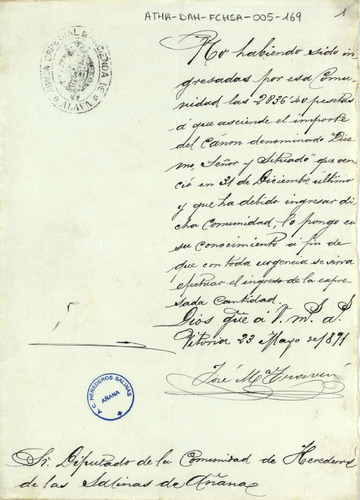 ATHA-DAH-FCHSA-005-169
1
No habiendo sido in
gresadas por esa Comu
nidad las 2836'40 pesetas
á que asciende el importe
del Cánon denominado "Diez
mo, Señor y Situado" que ven
ció en 31 de Diciembre último
y que ha debido ingresar di
cha Comunidad, lo pongo en
su conocimiento á fin de
que con toda urgencia se sirva
efectuar el ingreso de la expre
sada Cantidad.
Dios gue á V. m. a.
Vitoria 23 Mayo de 1891
José Mª
T. C. HEREDEROS SALINAS
AÑANA
Sr. Diputado de la Comunidad de Herederos
de las Salinas de Añana